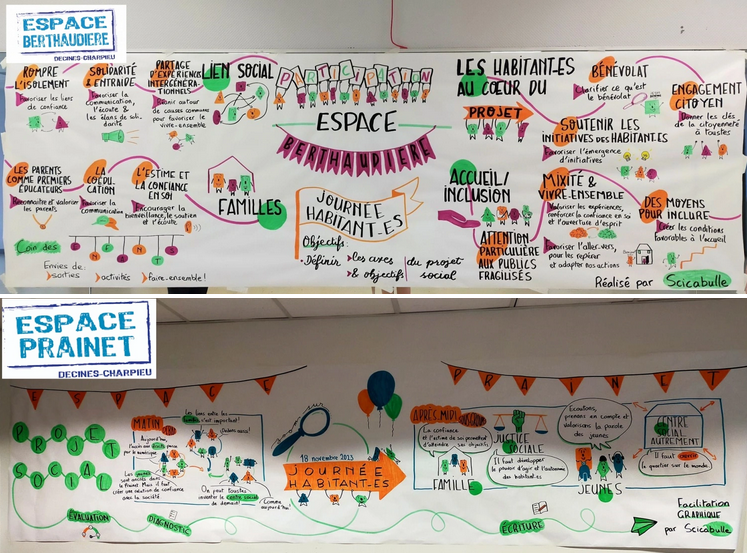 ESPACE
BERTHAUDIERE
DECINES-CHARPIEU
ROMPRE
L'ISOLEMENT
Favoriser les liens
de confiance
SOLIDARITÉ
& ENTRAIDE
Favoriser la
communication,
l'écoute &
les élans de soli-
darité
PARTAGE
D'EXPÉRIENCES
INTERGÉNÉRA-
TIONNELS
Réunir autour
de causes communes
pour favoriser le
vivre-ensemble
LIEN SOCIAL
PARTICIPATION
ESPACE
BERTHAUDIÈRE
LES HABITANT·ES
AU CŒUR DU
PROJET
BÉNÉVOLAT
Clarifier ce qu'est
le bénévolat
ENGAGEMENT
CITOYEN
Donner les clés
de la citoyenneté
à toustes
SOUTENIR LES
INITIATIVES DES HABITANT·ES
Favoriser l'émergence
d'initiatives
LES PARENTS
COMME PREMIERS
ÉDUCATEURS
Reconnaître et valoriser
les parents
LA
COÉDU-
CATION
Favoriser la
communication
L'ESTIME ET
LA CONFIANCE
EN SOI
Encourager la
bienveillance, le soutien
et l'écoute
FAMILLES
Coin des
PARENTS
Envies de:
sorties
activités
faire-ensemble!
JOURNÉE
HABITANT·ES
Objectifs:
Définir
les axes
& objectifs
du projet
social
ACCUEIL/
INCLUSION
ATTENTION
PARTICULIÈRE
AUX PUBLICS
FRAGILISÉS
MIXITÉ &
VIVRE-ENSEMBLE
Valoriser les expériences,
renforcer la confiance en soi
et l'ouverture d'esprit
Favoriser l'aller-vers,
pour les repérer
et adapter nos actions
DES MOYENS
POUR INCLURE
Créer les conditions
favorables à l'accueil
Réalisé par Scicabulle
ESPACE
PRAINET
DECINES-CHARPIEU
ESPACE
PRAINET
PROJET
SOCIAL
MATIN
Les liens entre les
c'est important!
Aujourd'hui,
On peut toustes
inventer le centre social
de demain!
Comme
aujourd'hui!
créer une relation de confiance
avec la société
18 novembre 2023
JOURNÉE
HABITANT·ES
APRÈS-MIDI
La confiance
et l'estime de soi permettent
d'atteindre ses objectifs
FAMILLE
JUSTICE
SOCIALE
Il faut développer
le pouvoir d'agir et l'autonomie
des habitant·es
Écoutons,
prenons en compte et
valorisons la parole
des jeunes
JEUNES
CENTRE
SOCIAL
AUTREMENT
Il faut ouvrir
le quartier sur le monde
ÉVALUATION
DIAGNOSTIC
ÉCRITURE
Facilitation
GRAPHIQUE
par Scicabulle